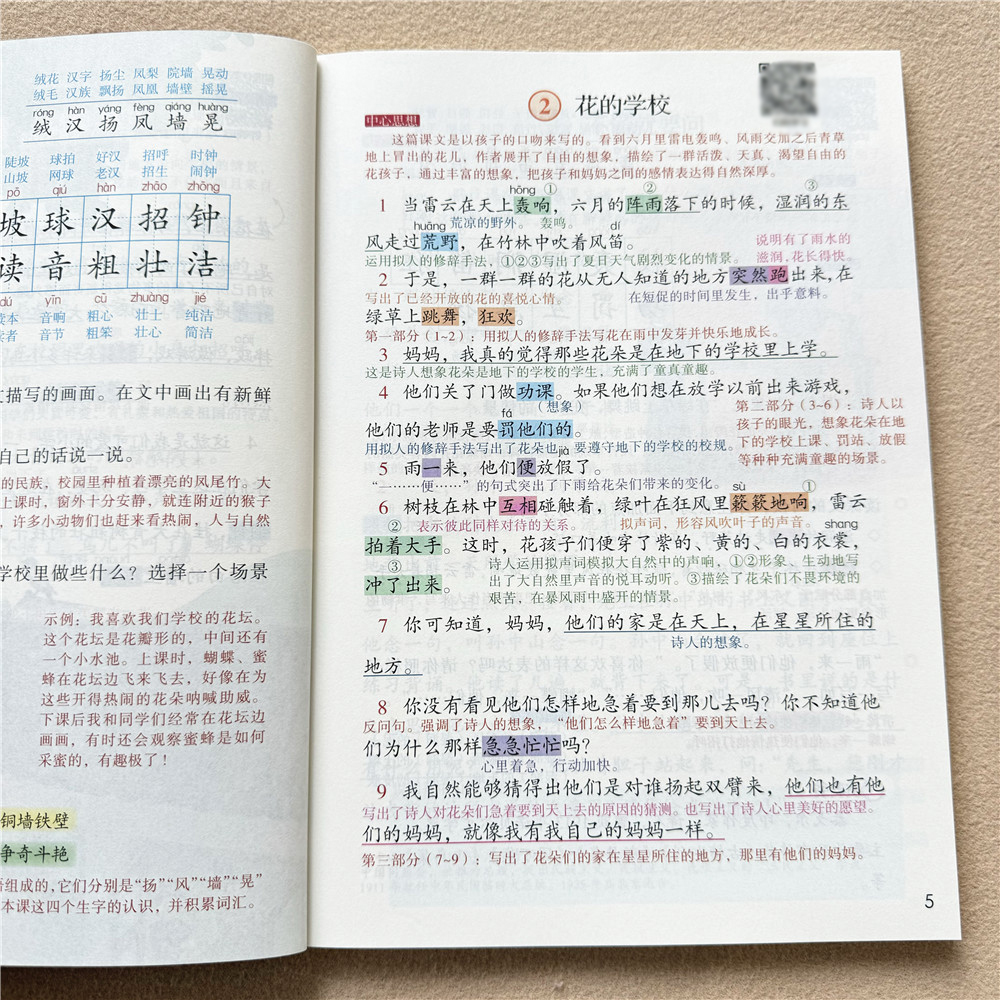 绒花 汉字 扬尘 凤梨 院墙 晃动
绒毛 汉族 飘扬 凤凰 墙壁 摇晃
róng hàn yáng fèng qiáng huàng
绒 汉 扬 凤 墙 晃
陡坡 球拍 好汉 招呼 时钟
山坡 网球 老汉 招生 闹钟
pō qiú hàn zhāo zhōng
坡 球 汉 招 钟
读 音 粗 壮 洁
dú yīn cū zhuàng jié
读本 音响 粗心 壮士 纯洁
读者 音节 粗笨 壮心 简洁
描写的画面。在文中画出有新鲜
自己的话说一说。
的民族，校园里种植着漂亮的凤尾竹。大
上课时，窗外十分安静，就连附近的猴子
，许多小动物们也赶来看热闹，人与自然
学校里做些什么？选择一个场景
示例：我喜欢我们学校的花坛。
这个花坛是花瓣形的，中间还有
一个小水池。上课时，蝴蝶、蜜
蜂在花坛边飞来飞去，好像在为
这些开得热闹的花朵呐喊助威。
下课后我和同学们经常在花坛边
画画，有时还会观察蜜蜂是如何
采蜜的，有趣极了！
铜墙铁壁
争奇斗艳
组成的，它们分别是“扬”“风”“墙”“晃”
本课这四个生字的认识，并积累词汇。
2 花的学校
中心思想
这篇课文是以孩子的口吻来写的。看到六月里雷电轰鸣、风雨交加之后青草
地上冒出的花儿，作者展开了自由的想象，描绘了一群活泼、天真、渴望自由的
花孩子，通过丰富的想象，把孩子和妈妈之间的感情表达得自然深厚。
hōng ① ② ③
1 当雷云在天上轰响，六月的阵雨落下的时候，湿润的东
huāng 荒凉的野外。 轰鸣。 dí
风走过荒野，在竹林中吹着风笛。
说明有了雨水的
滋润，花长得快。
运用拟人的修辞手法，①②③写出了夏日天气剧烈变化的情景。
2 于是，一群一群的花从无人知道的地方突然跑出来，在
写出了已经开放的花的喜悦心情。 在短促的时间里发生，出乎意料。
绿草上跳舞，狂欢。
第一部分（1~2）：用拟人的修辞手法写花在雨中发芽并快乐地成长。
3 妈妈，我真的觉得那些花朵是在地下的学校里上学。
这是诗人想象花朵是地下的学校的学生，充满了童真童趣。
4 他们关了门做功课。如果他们想在放学以前出来游戏，
fá （想象）
他们的老师是要罚他们的。
第二部分（3~6）：诗人以
孩子的眼光，想象花朵在地
下的学校上课、罚站、放假
等种种充满童趣的场景。
用拟人的修辞手法写出了花朵也 要遵守地下的学校的校规。
jià
5 雨一来，他们便放假了。
“一……便……”的句式突出了下雨给花朵们带来的变化。
sù ①
6 树枝在林中互相碰触着，绿叶在狂风里簌簌地响，雷云
② 表示彼此同样对待的关系。 拟声词，形容风吹叶子的声音。 shang
拍着大手。这时，花孩子们便穿了紫的、黄的、白的衣裳，
③
冲了出来。
诗人运用拟声词模拟大自然中的声响，①②形象、生动地写
出了大自然里声音的悦耳动听。③描绘了花朵们不畏环境的
艰苦，在暴风雨中盛开的情景。
7 你可知道，妈妈，他们的家是在天上，在星星所住的
诗人的想象。
地方。
8 你没有看见他们怎样地急着要到那儿去吗？你不知道他
反问句。强调了诗人的想象，“他们怎么样地急着”要到天上去。
们为什么那样急急忙忙吗？
心里着急，行动加快。
9 我自然能够猜得出他们是对谁扬起双臂来，他们也有他
写出了诗人对花朵们急着要到天上去的原因的猜测。也写出了诗人心里美好的愿望。
们的妈妈，就像我有我自己的妈妈一样。
第三部分（7~9）：写出了花朵们的家在星星所住的地方，那里有他们的妈妈。
5